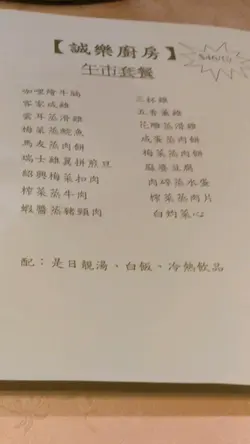 【誠樂廚房】
午市套餐
咖哩燴牛腩
客家咸雞
雲耳蒸滑雞
梅菜蒸鯇魚
馬友蒸肉餅
瑞士雞翼拼煎豆
紹興梅菜扣肉
榨菜蒸牛肉
蝦醬蒸豬頸肉
三杯雞
五香蒸雞
花雕蒸滑雞
咸蛋蒸肉餅
梅菜蒸肉餅
麻婆豆腐
肉碎蒸水蛋
榨菜蒸肉片
白灼菜心
配：是日靚湯、白飯、冷熱飲品